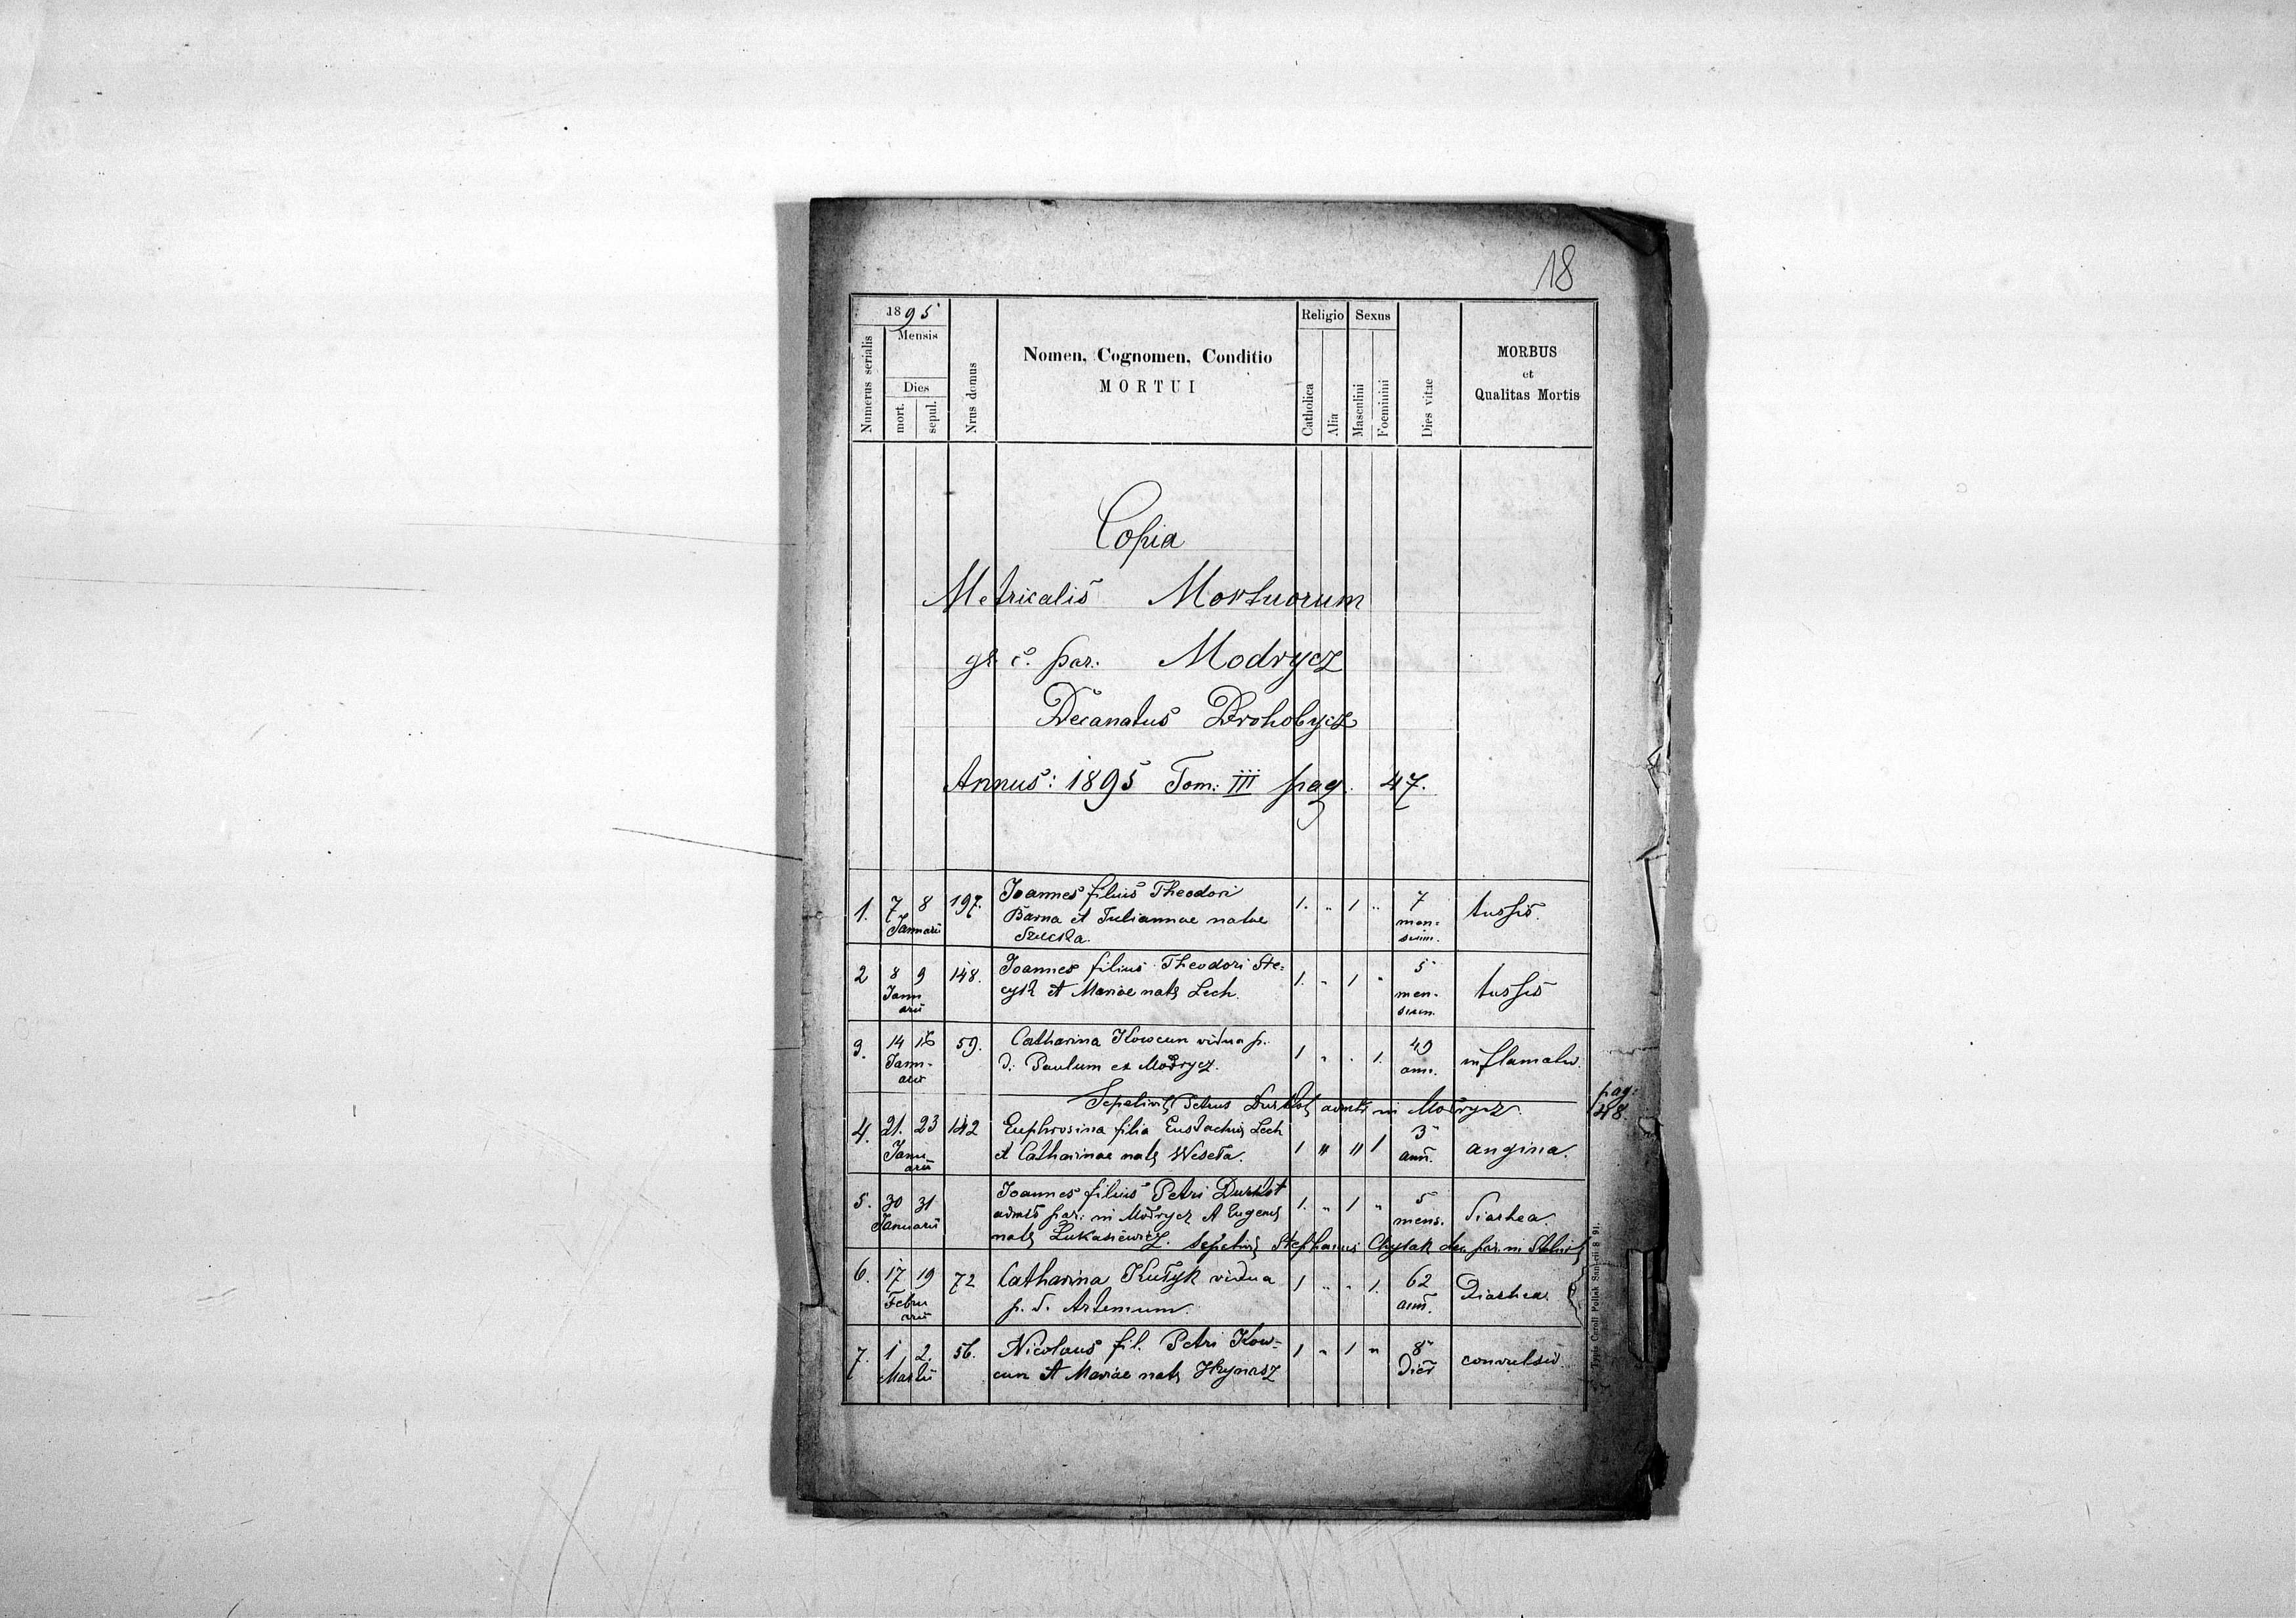 18
1895
Mensis
Dies
Numerus serialis
mort.
sepul.
Nrus domus
Nomen, Cognomen, Conditio
MORTUI
Religio
Catholica
Alia
Sexus
Masculini
Foeminini
Dies vitae
MORBUS
et
Qualitas Mortis
Copia
Metricalis Mortuorum
gr. c. par. Modrycz
Decanatus Drohobycz
Annus: 1895 Tom: III pag. 47.
1. 7 8 197. Joannes filius Theodori 1. " 1 " 7 tussis.
Januarii Barna et Juliannae natae men-
sium.
2 8 9 148. Joannes filius Theodori Ste- 1. " 1 " 5 tussis
Janu cyk et Mariae nata Lech. men-
arii sium.
3. 14 16 59. Catharina Kowcun vidua p. 1 " . 1. 49 inflamatio.
Janu- d. Paulum ex Modrycz. ann.
arii
Petrus Durkot in Modrycz. pag: 48.
4. 21. 23 142 Euphrosina filia Eustachii Lech 1 " " 1 3 angina.
Janu et Catharinae nata Weseła. ann.
arii
5. 30 31 Joannes filius Petri Durkot 1. " 1 " 5 diarhea.
Januarii par: in Modrycz et Eugenia mens.
nata Łukasiewicz. Stephanus par. in
6. 17 19 72 Catharina Kutyk vidua 1 " " 1. 62 Diarhea.
Febru p. d. Artemium. ann.
arii
7. 1 2. 56. Nicolaus fil. Petri Kow- 1 " 1 " 8 convulsio.
Martii cun et Mariae nata Hrynasz dies
Typis Caroli Pollak Sanocii 8 91.